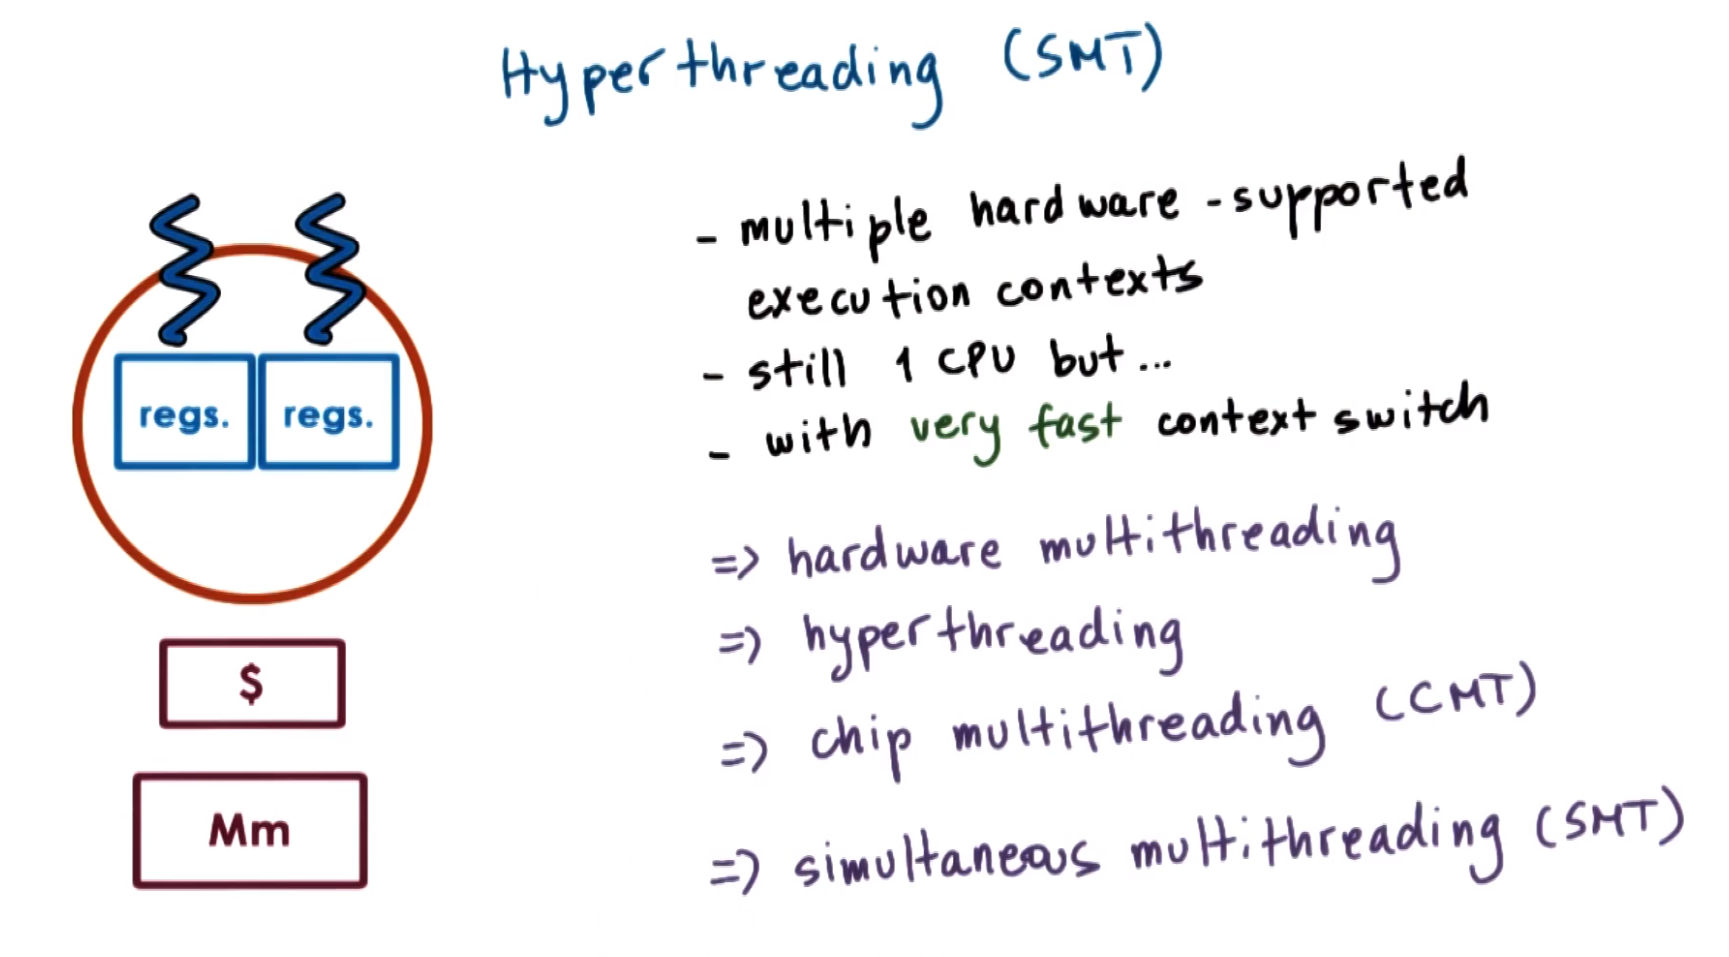 Hyperthreading (SMT)
- multiple hardware-supported
execution contexts
- still 1 CPU but...
- with very fast context switch
=> hardware multithreading
=> hyperthreading
=> chip multithreading (CMT)
=> simultaneous multithreading (SMT)
regs. regs.
$
Mm